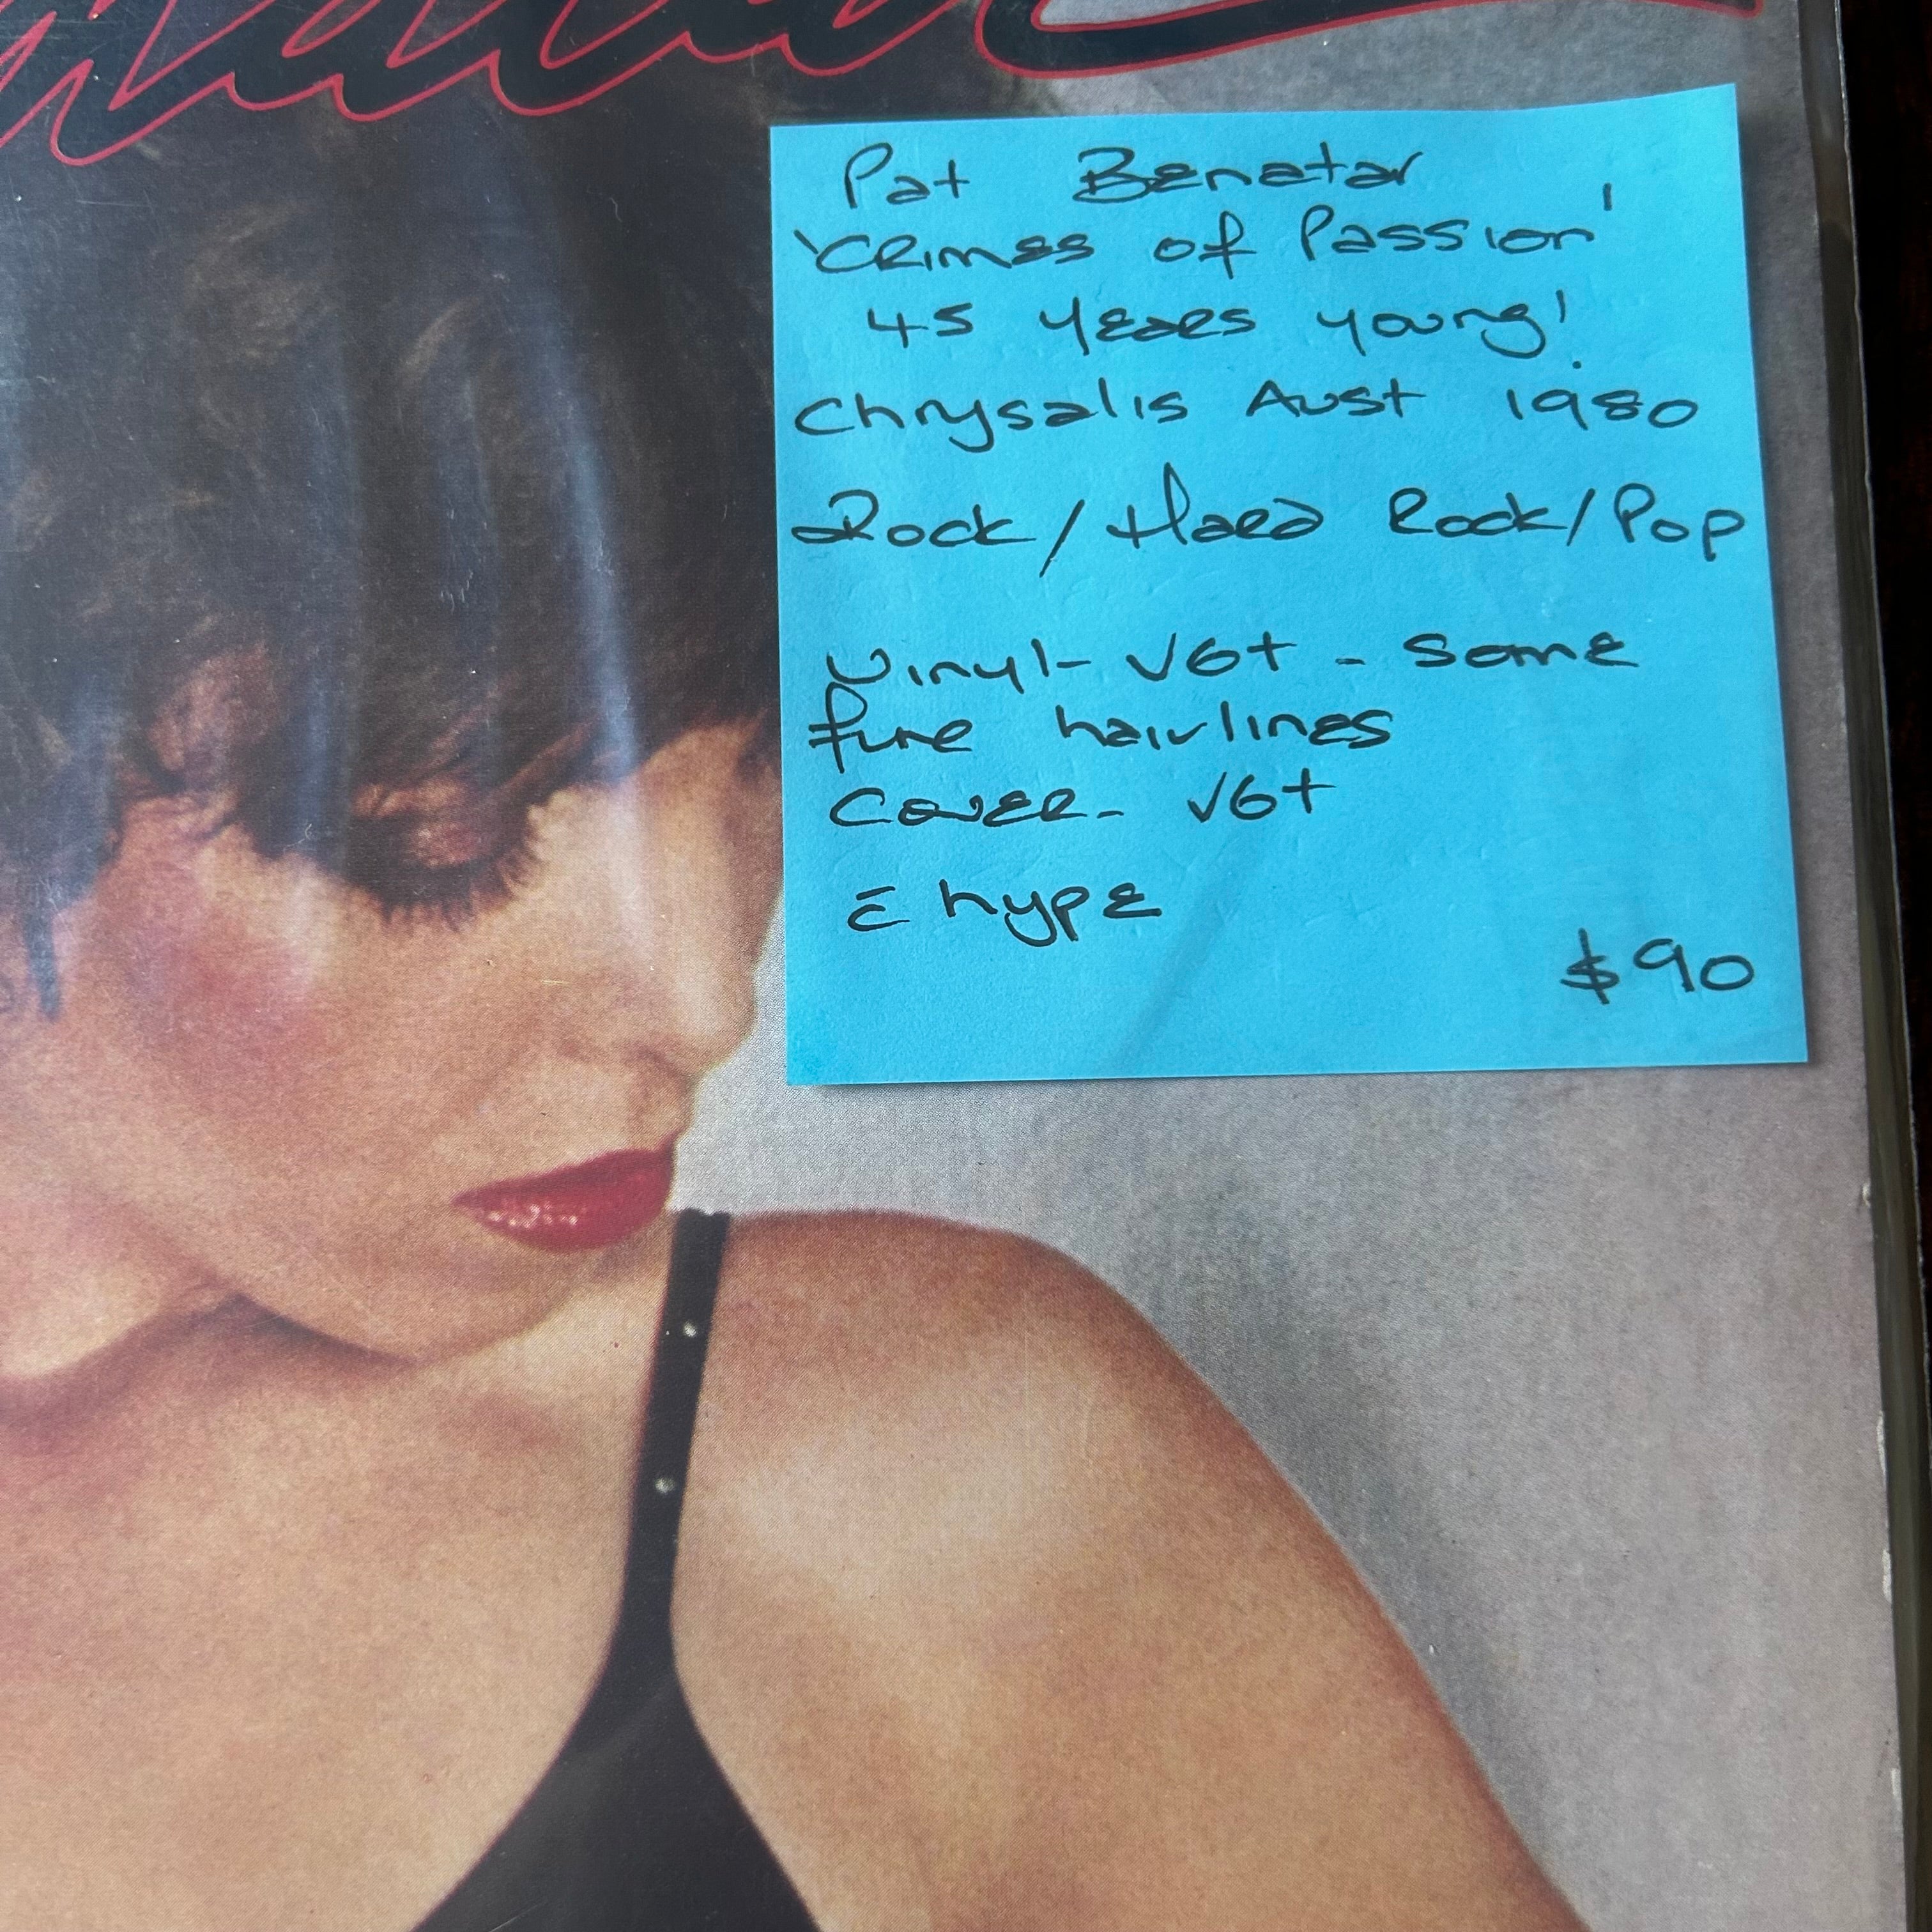 Pat Benatar
'Crimes of Passion'
45 years young!
Chrysalis Aust 1980
Rock / Hard Rock / Pop
Vinyl - VG+ - some
fine hairlines
Cover - VG+
c hype
$90